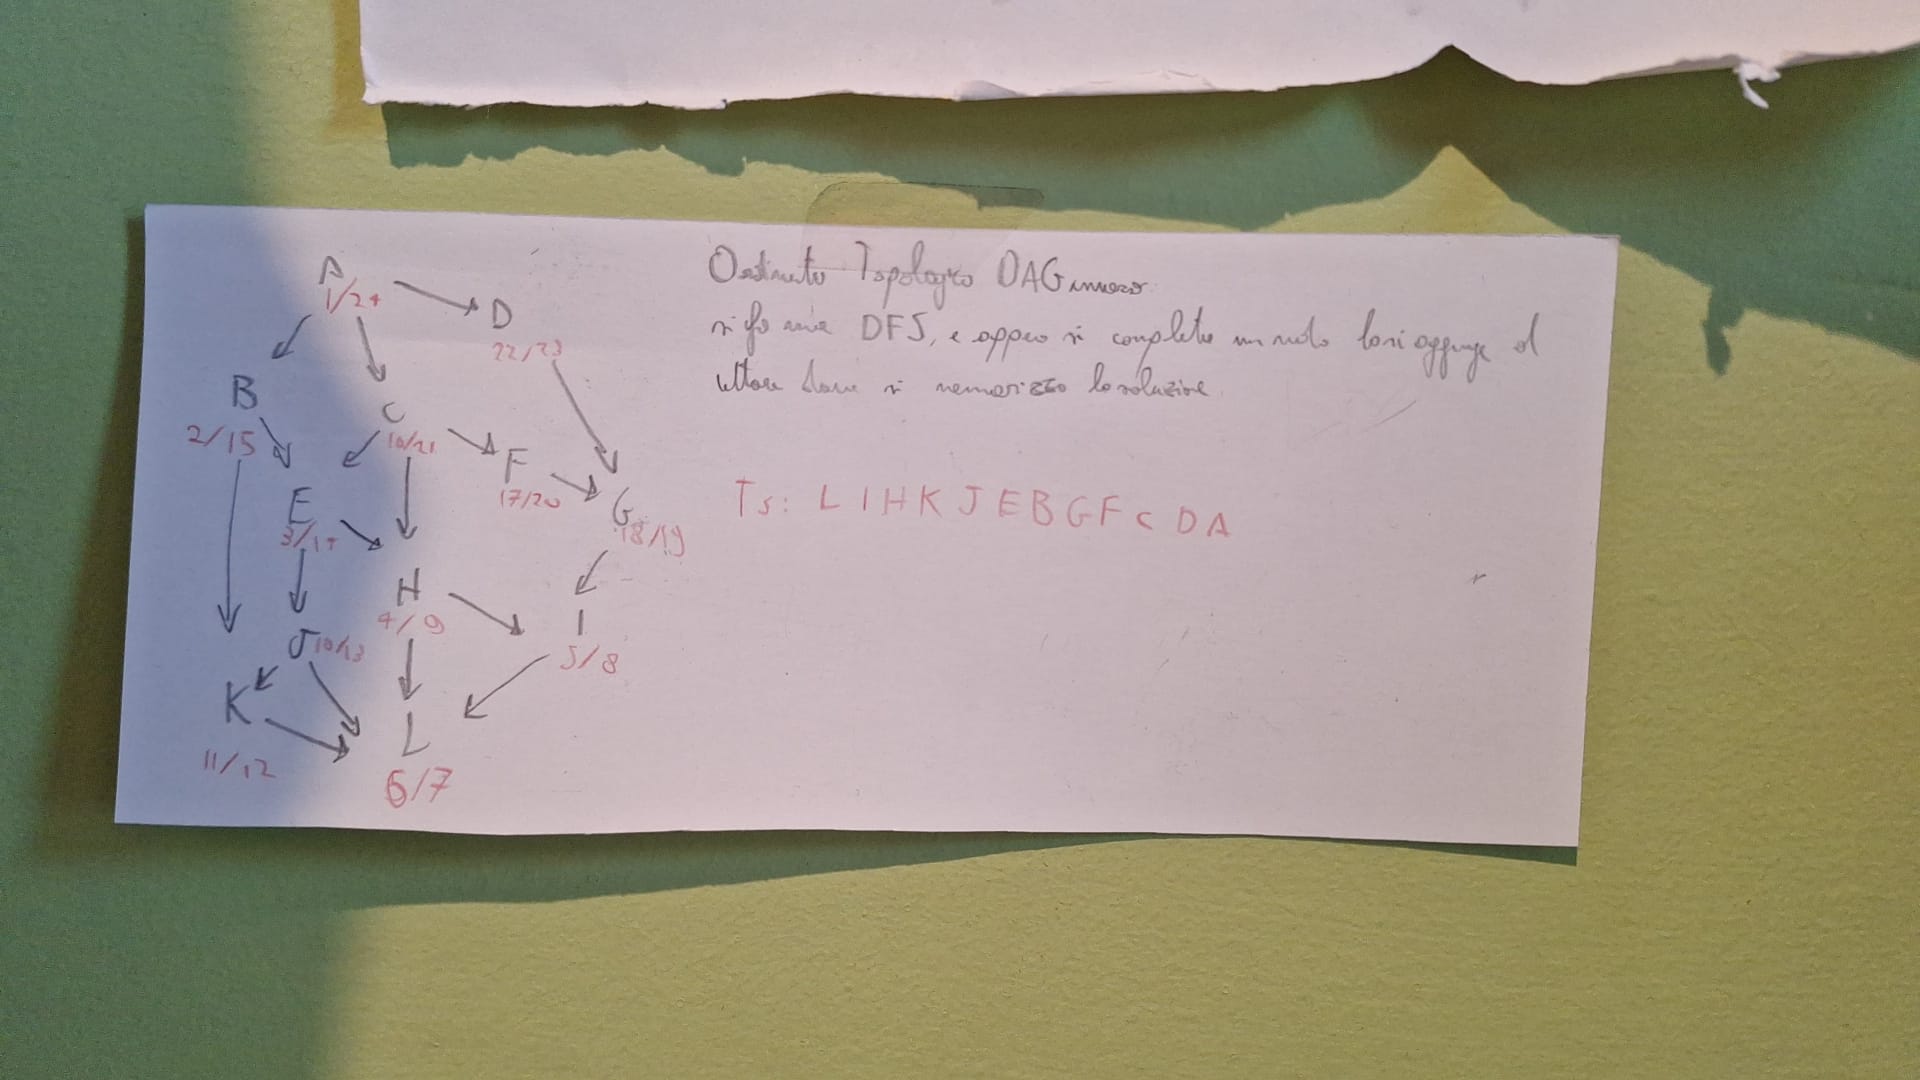 A
1/24
D
22/23
B
2/15
C
10/21
F
17/20
E
3/14
G
18/19
H
4/9
I
5/8
J 10/13
K
11/12
L
6/7
Topologico DAG inverso
si fa una DFS, e appena si completa un nodo lo si aggiunge al
vettore dove si memorizza la soluzione
Ts: L I H K J E B G F C D A